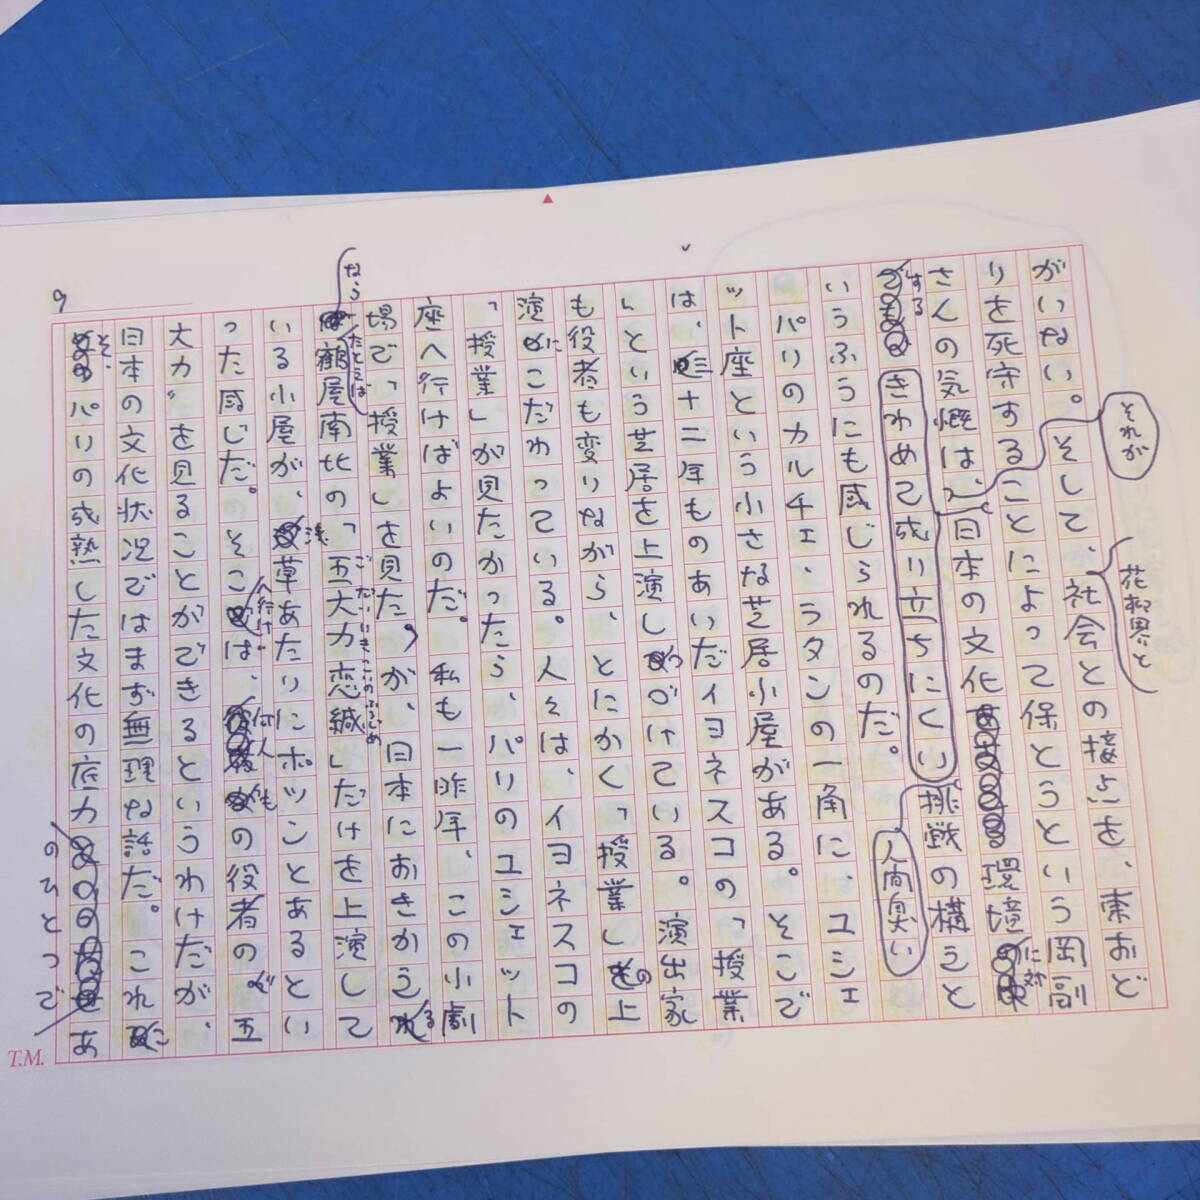 がいない。そして、花柳界と社会との接点を、東おど
りを死守することによって保とうという岡副
さんの気慨は、それが日本の文化環境に対
するきわめて成り立ちにくい人間臭い挑戦の構えと
いうふうにも感じられるのだ。
パリのカルチェ・ラタンの一角に、ユシェ
ット座という小さな芝居小屋がある。そこで
は、三十二年ものあいだイヨネスコの「授業
」という芝居を上演しつづけている。演出家
も役者も変りながら、とにかく「授業」の上
演にこだわっている。人々は、イヨネスコの
「授業」が見たかったら、パリのユシェット
座へ行けばよいのだ。私も一昨年、この小劇
場で「授業」を見た。が、日本におきかえる
なら、たとえば鶴屋南北の「五大力恋緘」だけを上演して
ごだいりきこいのふうじめ
いる小屋が、浅草あたりにポツンとあるとい
った感じだ。そこへ行けば、何人もの役者の〝五
大力〟を見ることができるというわけだが、
日本の文化状況ではまず無理な話だ。これこ
そ、パリの成熟した文化の底力のひとつであ
9
T.M.